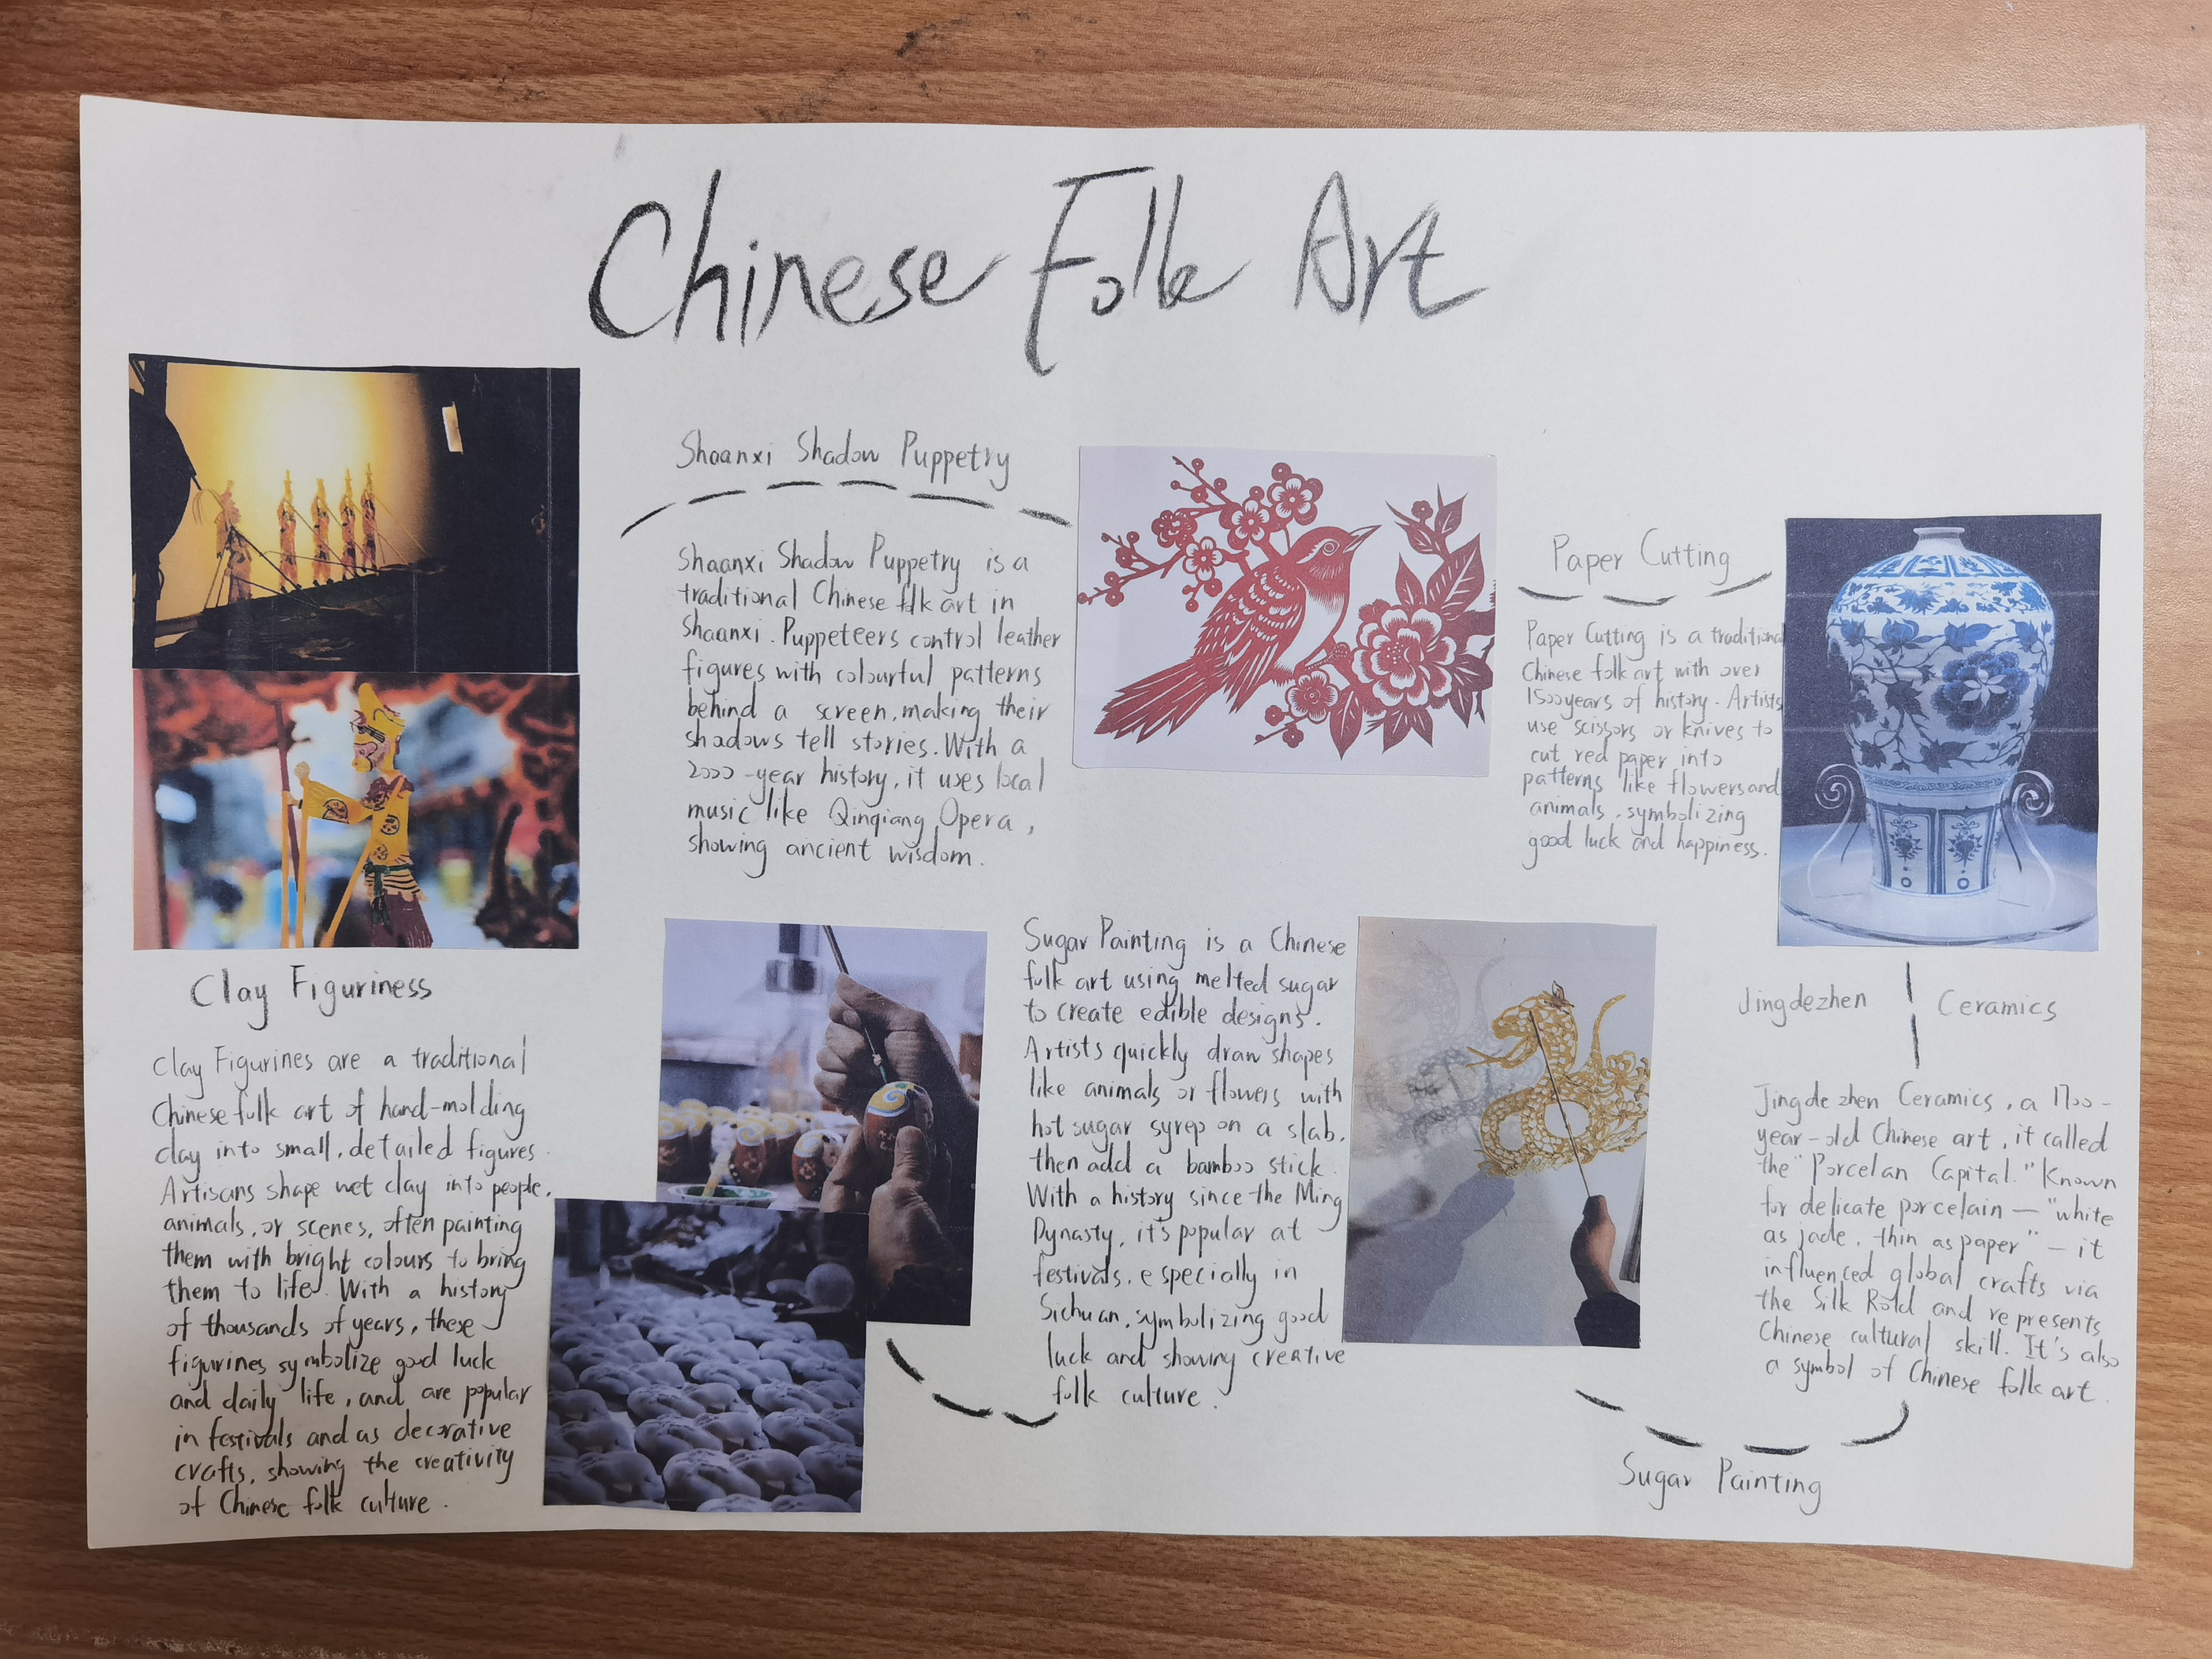 Chinese Folk Art
Shaanxi Shadow Puppetry
Shaanxi Shadow Puppetry is a
traditional Chinese folk art in
Shaanxi. Puppeteers control leather
figures with colourful patterns
behind a screen, making their
shadows tell stories. With a
2000-year history, it uses local
music like Qinqiang Opera,
showing ancient wisdom.
Paper Cutting
Paper Cutting is a traditional
Chinese folk art with over
1500 years of history. Artists
use scissors or knives to
cut red paper into
patterns like flowers and
animals, symbolizing
good luck and happiness.
Clay Figuriness
Clay Figurines are a traditional
Chinese folk art of hand-molding
clay into small, detailed figures.
Artisans shape wet clay into people,
animals, or scenes, often painting
them with bright colours to bring
them to life. With a history
of thousands of years, these
figurines symbolize good luck
and daily life, and are popular
in festivals and as decorative
crafts, showing the creativity
of Chinese folk culture.
Sugar Painting is a Chinese
folk art using melted sugar
to create edible designs.
Artists quickly draw shapes
like animals or flowers with
hot sugar syrep on a slab,
then add a bamboo stick.
With a history since the Ming
Dynasty, it's popular at
festivals, especially in
Sichuan, symbolizing good
luck and showing creative
folk culture.
Jingdezhen Ceramics
Jingdezhen Ceramics, a 1700-
year-old Chinese art, it called
the "Porcelan Capital." Known
for delicate porcelain — "white
as jade, thin as paper" — it
influenced global crafts via
the Silk Rold and represents
Chinese cultural skill. It's also
a symbol of Chinese folk art.
Sugar Painting